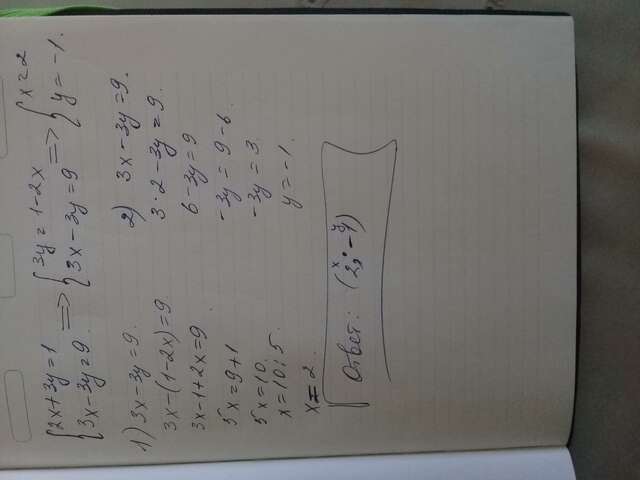 {2x+3y=1 => {3y=1-2x => {x=2
{3x-3y=9. {3x-3y=9 {y=-1.
1) 3x-3y=9.
3x-(1-2x)=9
3x-1+2x=9
5x=9+1
5x=10.
x=10:5.
x=2.
2) 3x-3y=9.
3·2-3y=9.
6-3y=9
-3y=9-6.
-3y=3.
y=-1.
x y
Ответ: (2; -1)